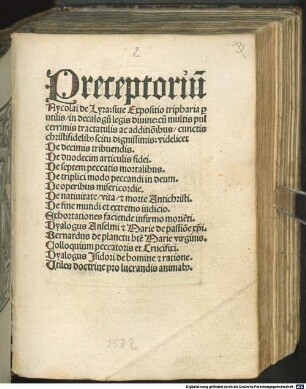 2
Preceptoriũ
Nycolai de Lyra: siue Expositio tripharia ꝑ
utilis/ in decalogũ legis diuine: cũ multis pul
cerrimis tractatulis ac additiõibus/ cunctis
christifidelibꝰ scitu dignissimis: videlicet
De decimis tribuendis.
De duodecim articulis fidei.
De septem peccatis mortalibus.
De triplici modo peccandi in deum.
De operibus misericordie.
De natiuitate/ vita/ & morte Antichristi.
De fine mundi et extremo iudicio.
Exhortationes faciende infirmo moriẽti.
Dyalogus Anselmi & Marie de passiõe xp̃i.
Bernardus de planctu btẽ Marie virginis.
Colloquium peccatoris et Crucifixi.
Dyalogus Isidori de homine & ratione.
Utiles doctrine pro lucrandis animabꝰ.
1502